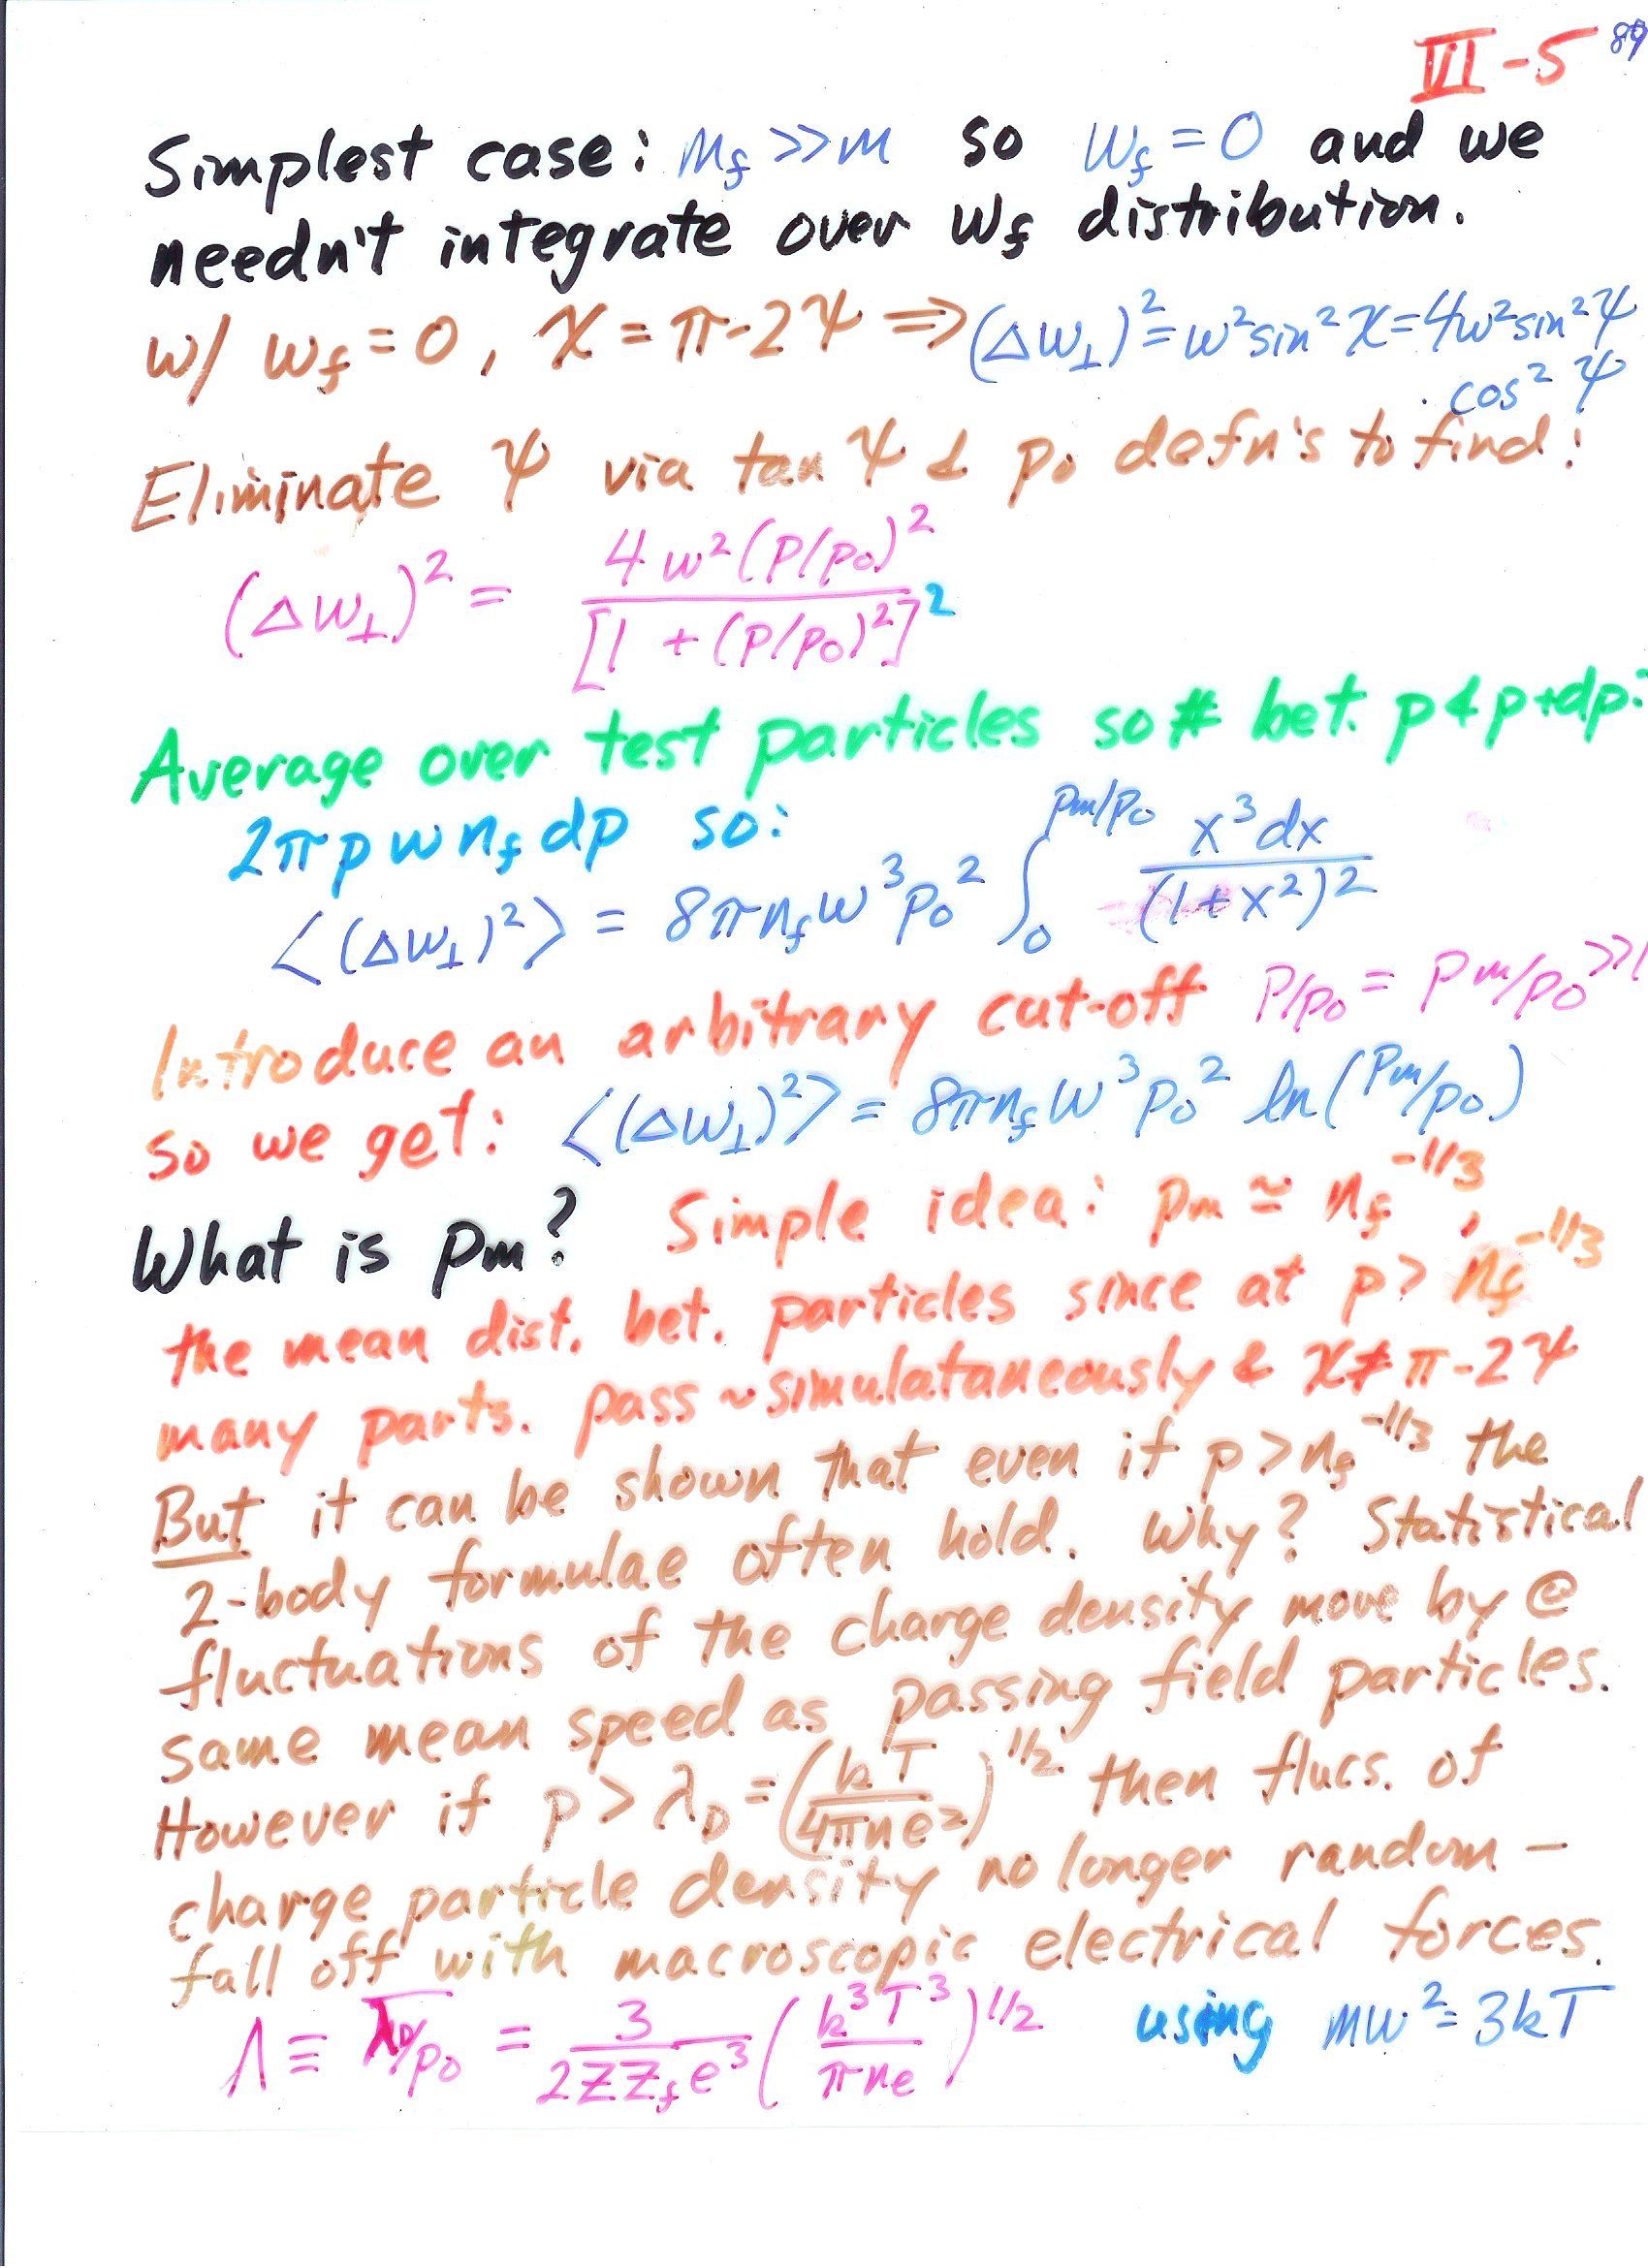 VII-5 89
Simplest case: m_f >> m so w_f = 0 and we
needn't integrate over w_f distribution.
w/ w_f = 0, χ = π-2ψ ⇒ (Δw_⊥)² = w² sin² χ = 4w² sin² ψ
· cos² ψ
Eliminate ψ via tan ψ & p_o defn's to find:
(Δw_⊥)² = 4w²(p/p_o)² / [1 + (p/p_o)²]²
Average over test particles so # bet. p & p+dp:
2πp w n_f dp so:
<(Δw_⊥)²> = 8πn_f w³ p_o² ∫_0^{pm/p_o} x³dx / (1+x²)²
Introduce an arbitrary cut-off p/p_o = pm/p_o >>1
so we get: <(Δw_⊥)²> = 8πn_f w³ p_o² ln(pm/p_o)
What is pm? Simple idea: pm ≃ n_f^{-1/3},
the mean dist. bet. particles since at p > n_f^{-1/3}
many parts. pass ~simulataneously & χ ≠ π-2ψ
But it can be shown that even if p > n_f^{-1/3} the
2-body formulae often hold. Why? Statistical
fluctuations of the charge density move by @
same mean speed as passing field particles.
However if p > λ_D = (kT/4πne²)^{1/2} then flucs. of
charge particle density no longer random –
fall off with macroscopic electrical forces.
Λ ≡ λ_D/p_o = 3/(2ZZ_f e³) (k³T³/πne)^{1/2} using mw² = 3kT